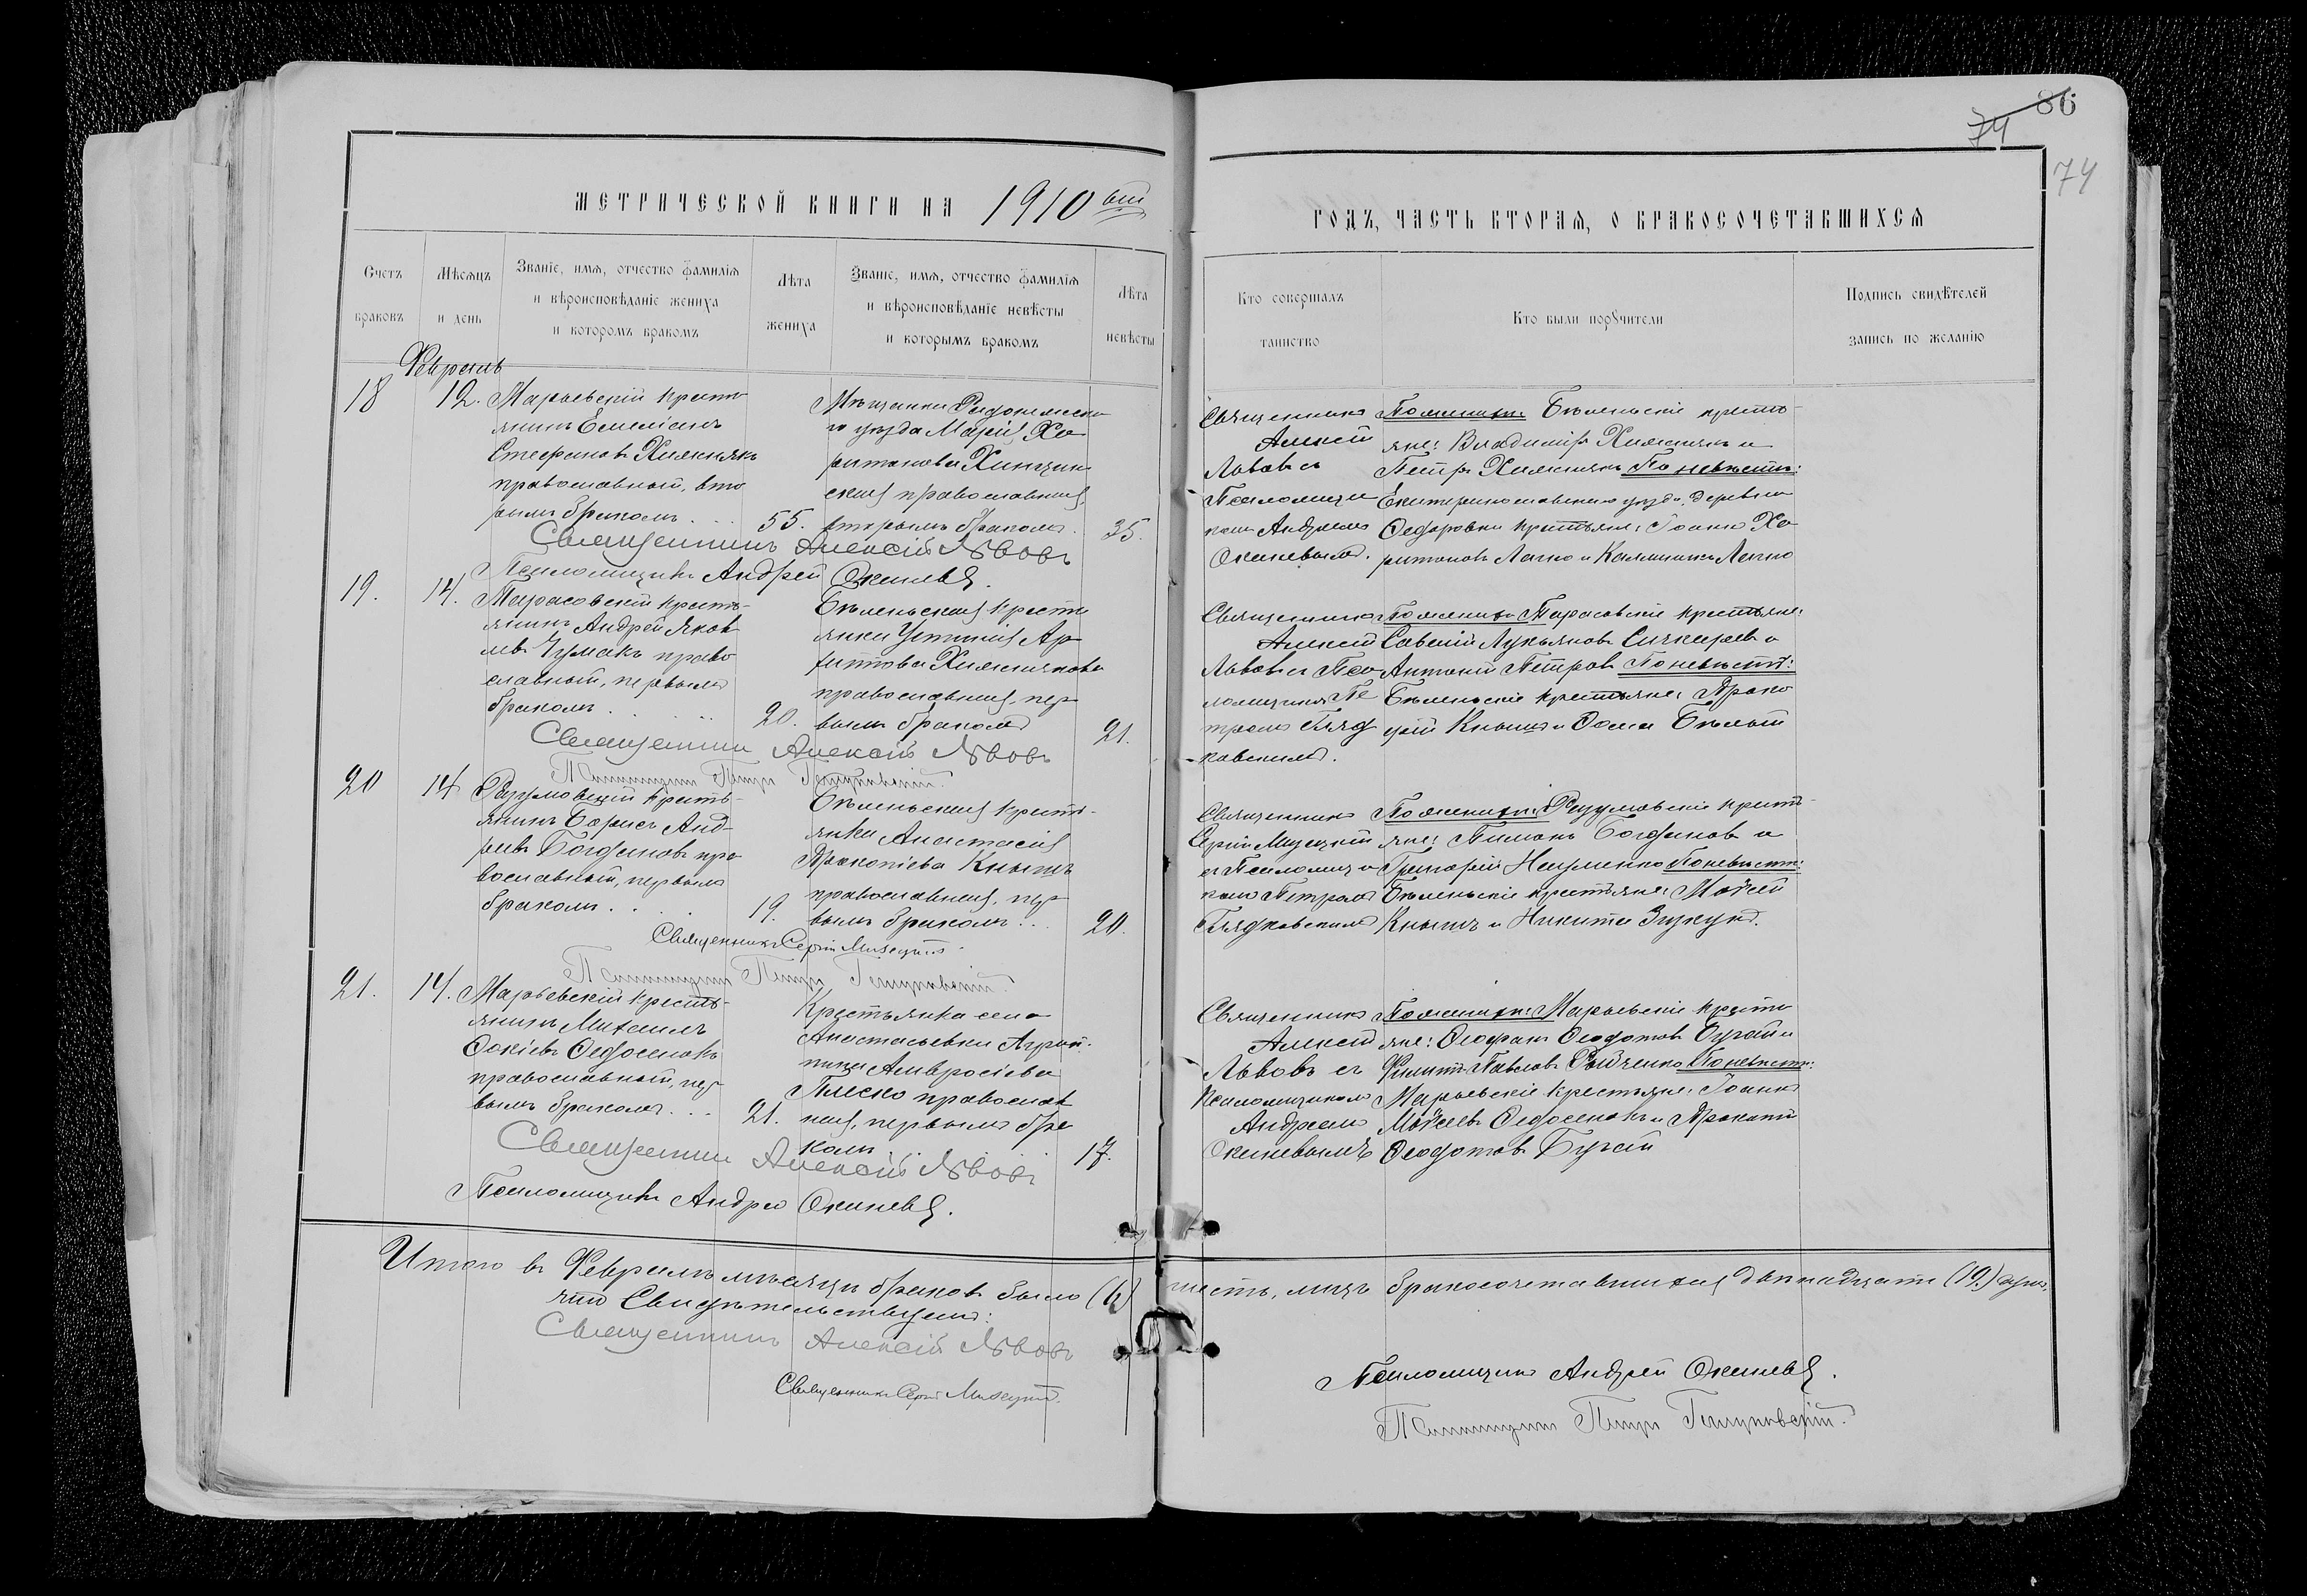 86
74
74
МЕТРИЧЕСКОЙ КНИГИ НА 1910 ый
ГОДЪ, ЧАСТЬ ВТОРАЯ, О БРАКОСОЧЕТАВШИХСЯ
Счетъ браковъ
Мѣсяцъ и день
Званіе, имя, отчество фамилія
и вѣроисповѣданіе жениха
и которомъ бракомъ
Лѣта жениха
Званіе, имя, отчество фамилія
и вѣроисповѣданіе невѣсты
и которымъ бракомъ
Лѣта невѣсты
Кто совершалъ таинство
Кто были порꙋчители
Подпись свидѣтелей
запись по желанію
Февраль
18
12.
Марьевскій кресть
янинъ Емеліанъ
Стефановъ Хижнякъ
православный, вто
рымъ бракомъ
55.
Мѣщанка
го уѣзда Марія Ха
ритонова
православная,
вторымъ бракомъ.
35.
Священникъ
Алексій
Львовъ съ
Псаломщи
комъ Андреемъ
Окиневымъ.
По женихѣ: Бѣленьскіе кресть
яне: Владиміръ Хижнякъ и
Петръ Хижнякъ По невѣстѣ:
Екатеринославскаго уѣзда, деревни
Федоровки крестьяне: Іоаннъ Ха
ритоновъ Лагно и Калиникъ Лагно
Священникъ Алексій Львовъ
Псаломщикъ Андрей Окиневъ.
19.
14.
Тарасовскій кресть-
янинъ Андрей Яков
левъ Чумакъ право
славный, первымъ
бракомъ
20.
Бѣленьская кресть
янка Устинія Ар
Хижнякова
православная, пер
вымъ бракомъ
21.
Священникъ
Алексій
Львовъ и Пса
ломщикъ Пе
тромъ
ковскимъ.
По женихѣ: Тарасовскіе крестьяне:
Савелій Лукьяновъ и
Антоній Петровъ По невѣстѣ:
Бѣленьскіе крестьяне: Проко
пій Кнышъ и Фома Бѣлый
Священникъ Алексій Львовъ
Псаломщикъ Петръ
20
14
Разумовскій кресть-
янинъ Борисъ Анд-
реевъ Богдановъ пра
вославный, первымъ
бракомъ
19.
Бѣленьская кресть-
янка Анастасія
Прокопіева Кнышъ
православная, пер
вымъ бракомъ
20.
Священникъ
Сергій
съ Псаломщи
комъ Петромъ
По женихѣ: Разумовскіе кресть-
яне: Пименъ Богдановъ и
Григорій Науменко По невѣстѣ:
Бѣленьскіе крестьяне: Моѵсей
Кнышъ и Никита
Священникъ Сергій
Псаломщикъ Петръ
21.
14.
Марьевскій кресть-
янинъ Михаилъ
Фокіевъ Федосенокъ
православный, пер
вымъ бракомъ
21.
Крестьянка села
Анастасьевки Агрип-
пина Амвросіева
Плеско православ
ная, первымъ бра
комъ
17.
Священникъ
Алексій
Львовъ съ
Псаломщикомъ
Андреемъ
Окиневымъ
По женихѣ: Марьевскіе кресть
яне: Феофанъ Феодотовъ Бугай и
Филиппъ Павловъ По невѣстѣ:
Марьевскіе крестьяне: Іоаннъ
Моѵсеевъ Федосенокъ и
Феодотовъ Бугай
Священникъ Алексій Львовъ
Псаломщикъ Андрей Окиневъ.
Итого въ Февралѣ мѣсяцѣ браковъ было (6) шесть, лицъ бракосочетавшихся двѣнадцать (12.) душъ,
что Свидѣтельствуемъ:
Священникъ Алексій Львовъ
Священникъ Сергій
Псаломщикъ Андрей Окиневъ.
Псаломщикъ Петръ